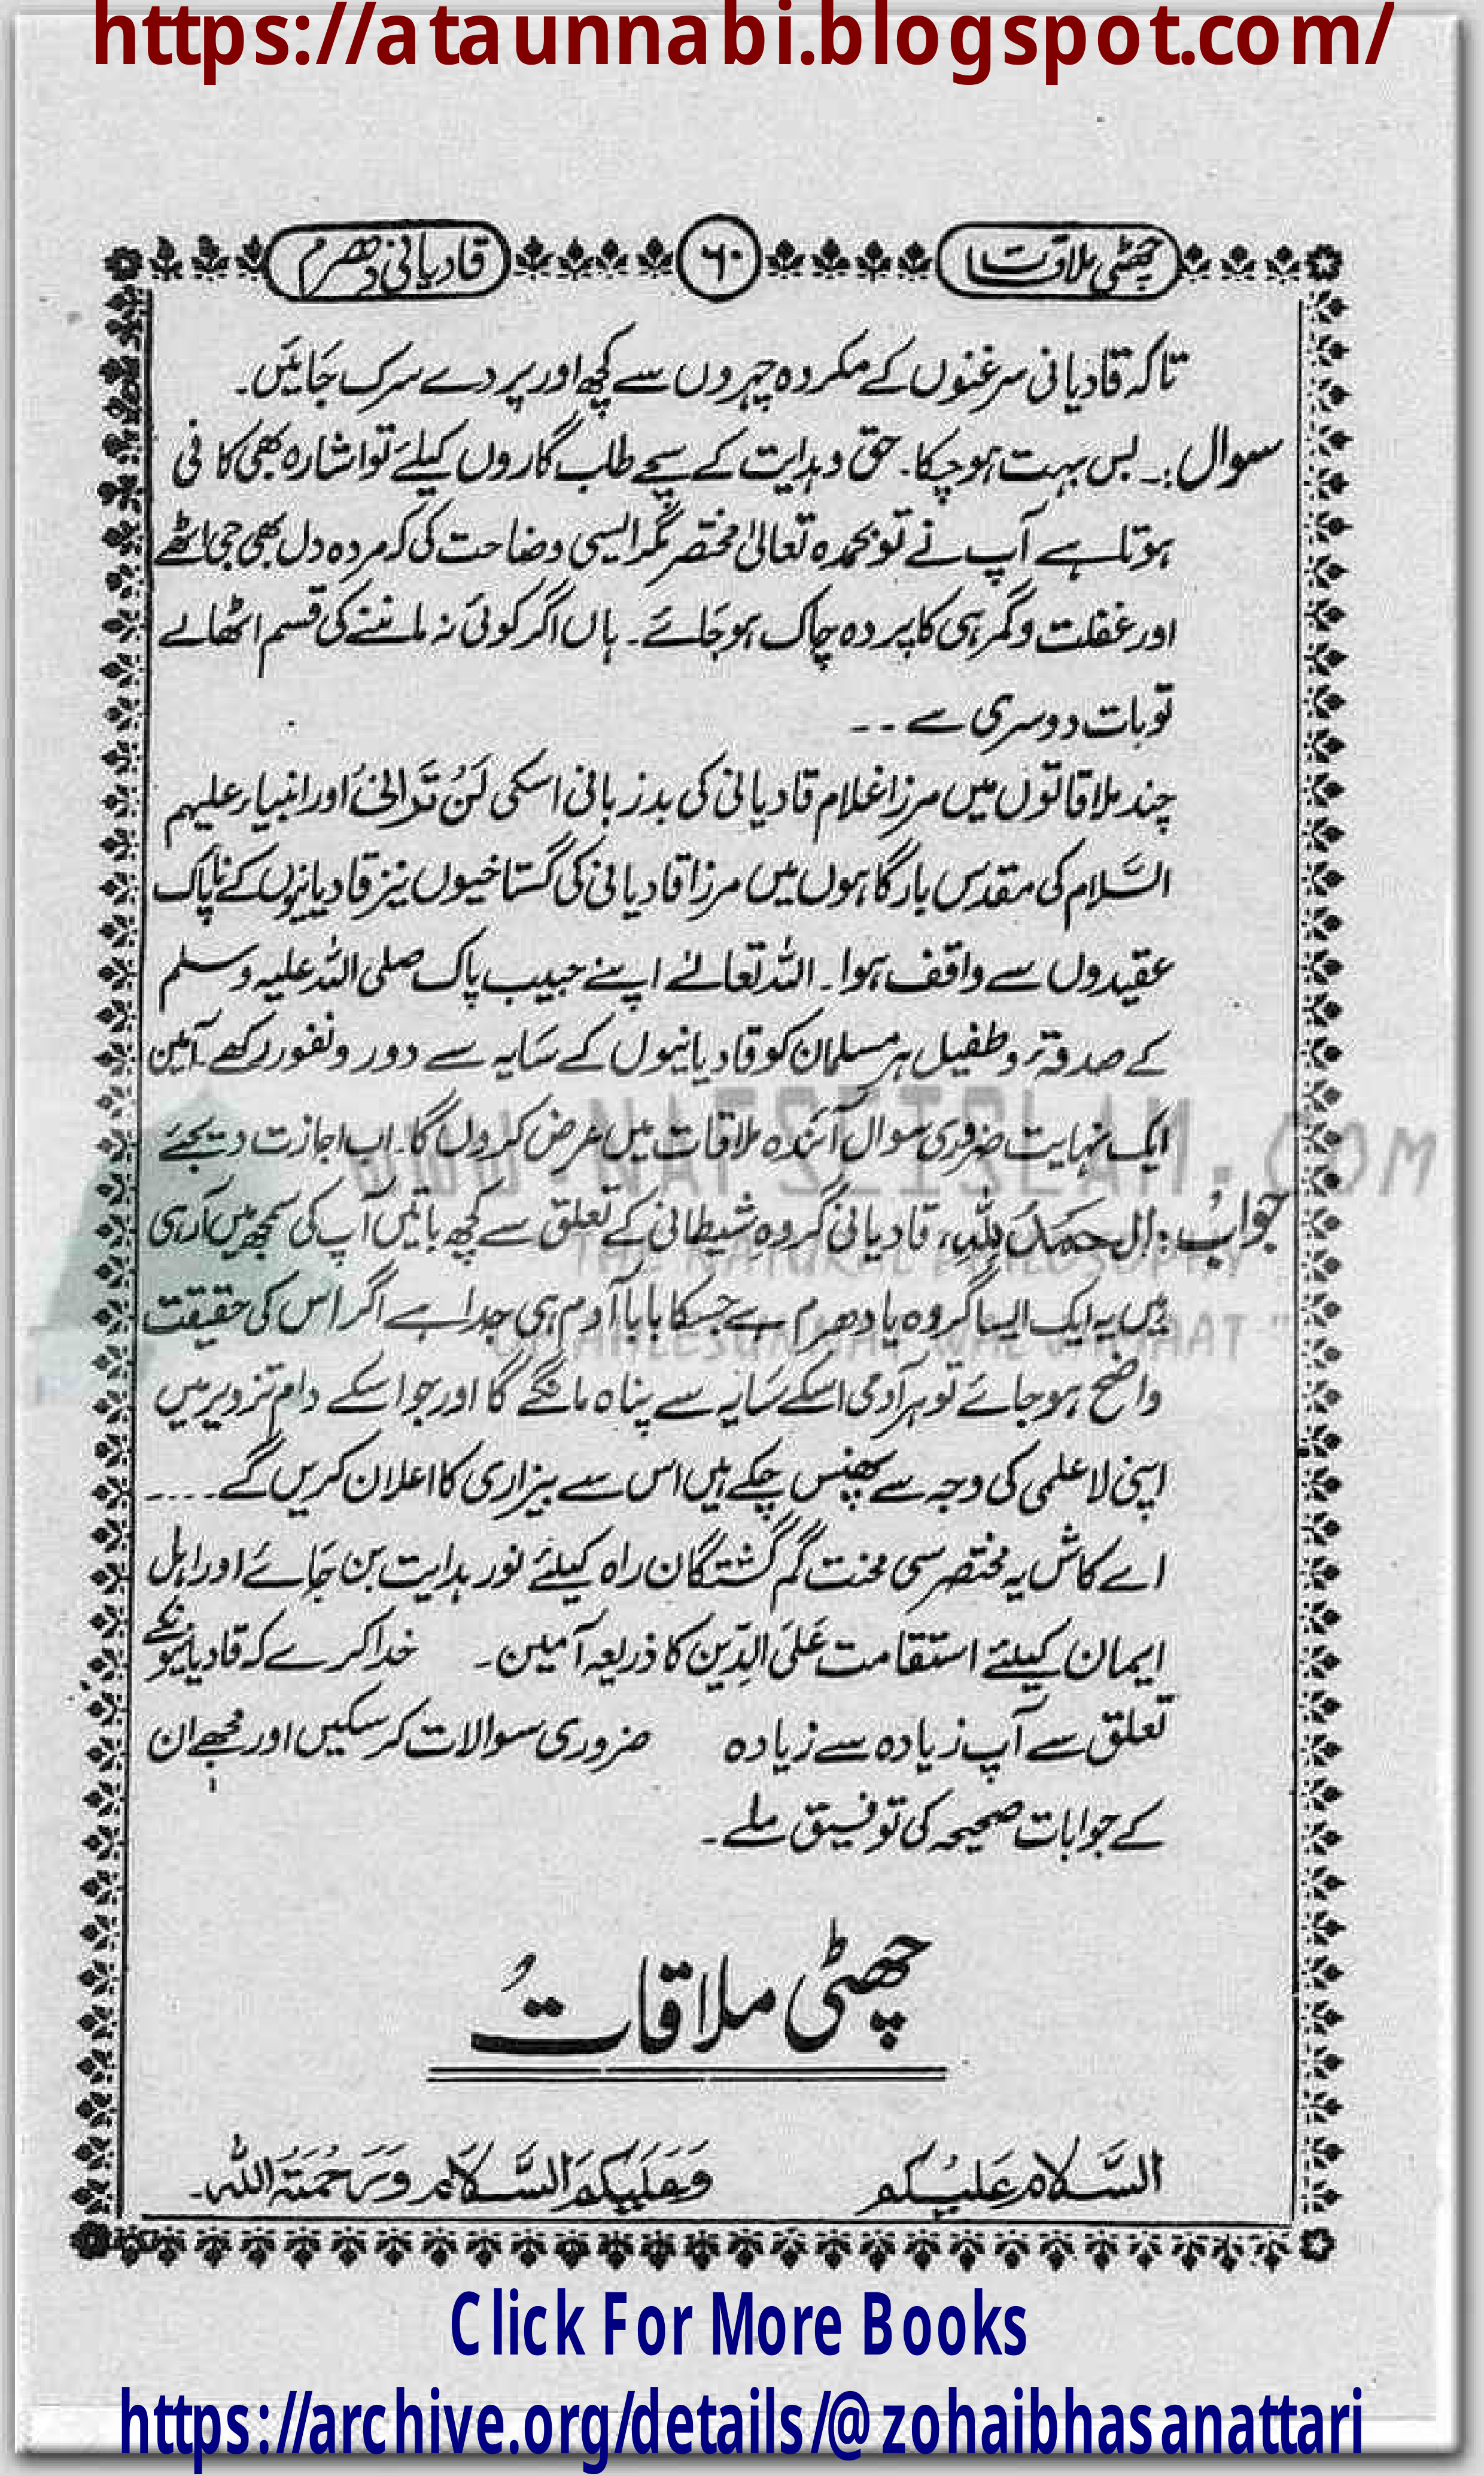 https://ataunnabi.blogspot.com/
چھٹی ملاقات ۶۰ قادیانی دھرم
تاکہ قادیانی سرغنوں کے مکروہ چہروں سے کچھ اور پردے سرک جائیں۔
سوال:۔ بس بہت ہو چکا۔ حق و ہدایت کے سچے طلب گاروں کیلئے تو اشارہ بھی کافی
ہوتا ہے آپ نے تو بحمدہ تعالیٰ مختصر مگر ایسی وضاحت کی کہ مردہ دل بھی جی اٹھے
اور غفلت و گمرہی کا پردہ چاک ہو جائے۔ ہاں اگر کوئی نہ ماننے کی قسم اٹھالے
تو بات دوسری ہے ۔۔
چند ملاقاتوں میں مرزا غلام قادیانی کی بدزبانی اسکی لَنْ تَرَانِیْ اور انبیار علیہم
السَّلام کی مقدس بارگاہوں میں مرزا قادیانی کی گستاخیوں نیز قادیانیوں کے ناپاک
عقیدوں سے واقف ہوا۔ اللہ تعالےٰ اپنے حبیب پاک صلی اللہ علیہ وسلم
کے صدقہ و طفیل ہر مسلمان کو قادیانیوں کے سایہ سے دور و نفور رکھے۔ آمین
ایک نہایت ضروری سوال آئندہ ملاقات میں عرض کروں گا۔ اب اجازت دیجئے
جواب: الحمد للہ، قادیانی گروہِ شیطانی کے تعلق سے کچھ باتیں آپ کی سمجھ میں آرہی
ہیں یہ ایک ایسا گروہ یا دھرم ہے جسکا بابا آدم ہی جدا ہے اگر اس کی حقیقت
واضح ہو جائے تو ہر آدمی اسکے سایہ سے پناہ مانگے گا اور جو اسکے دام تزویر میں
اپنی لاعلمی کی وجہ سے پھنس چکے ہیں اس سے بیزاری کا اعلان کریں گے ۔۔۔۔
اے کاش یہ مختصر سی محنت گم گشتگان راہ کیلئے نور ہدایت بن جائے اور اہل
ایمان کیلئے استقامت عَلَی الدِّین کا ذریعہ آمین۔ خدا کرے کہ قادیانیوں کے
تعلق سے آپ زیادہ سے زیادہ ضروری سوالات کر سکیں اور مجھے ان
کے جوابات صحیحہ کی توفیق ملے۔
چھٹی ملاقات
السَّلام عَلیکم وَعَلَیکم السَّلام وَرَحْمَۃُ اللہ۔
www.NAFSEISLAM.COM
"THE NATURAL PHILOSOPHY
OF AHLESUNNAT WAL JAMAAT"
Click For More Books
https://archive.org/details/@zohaibhasanattari